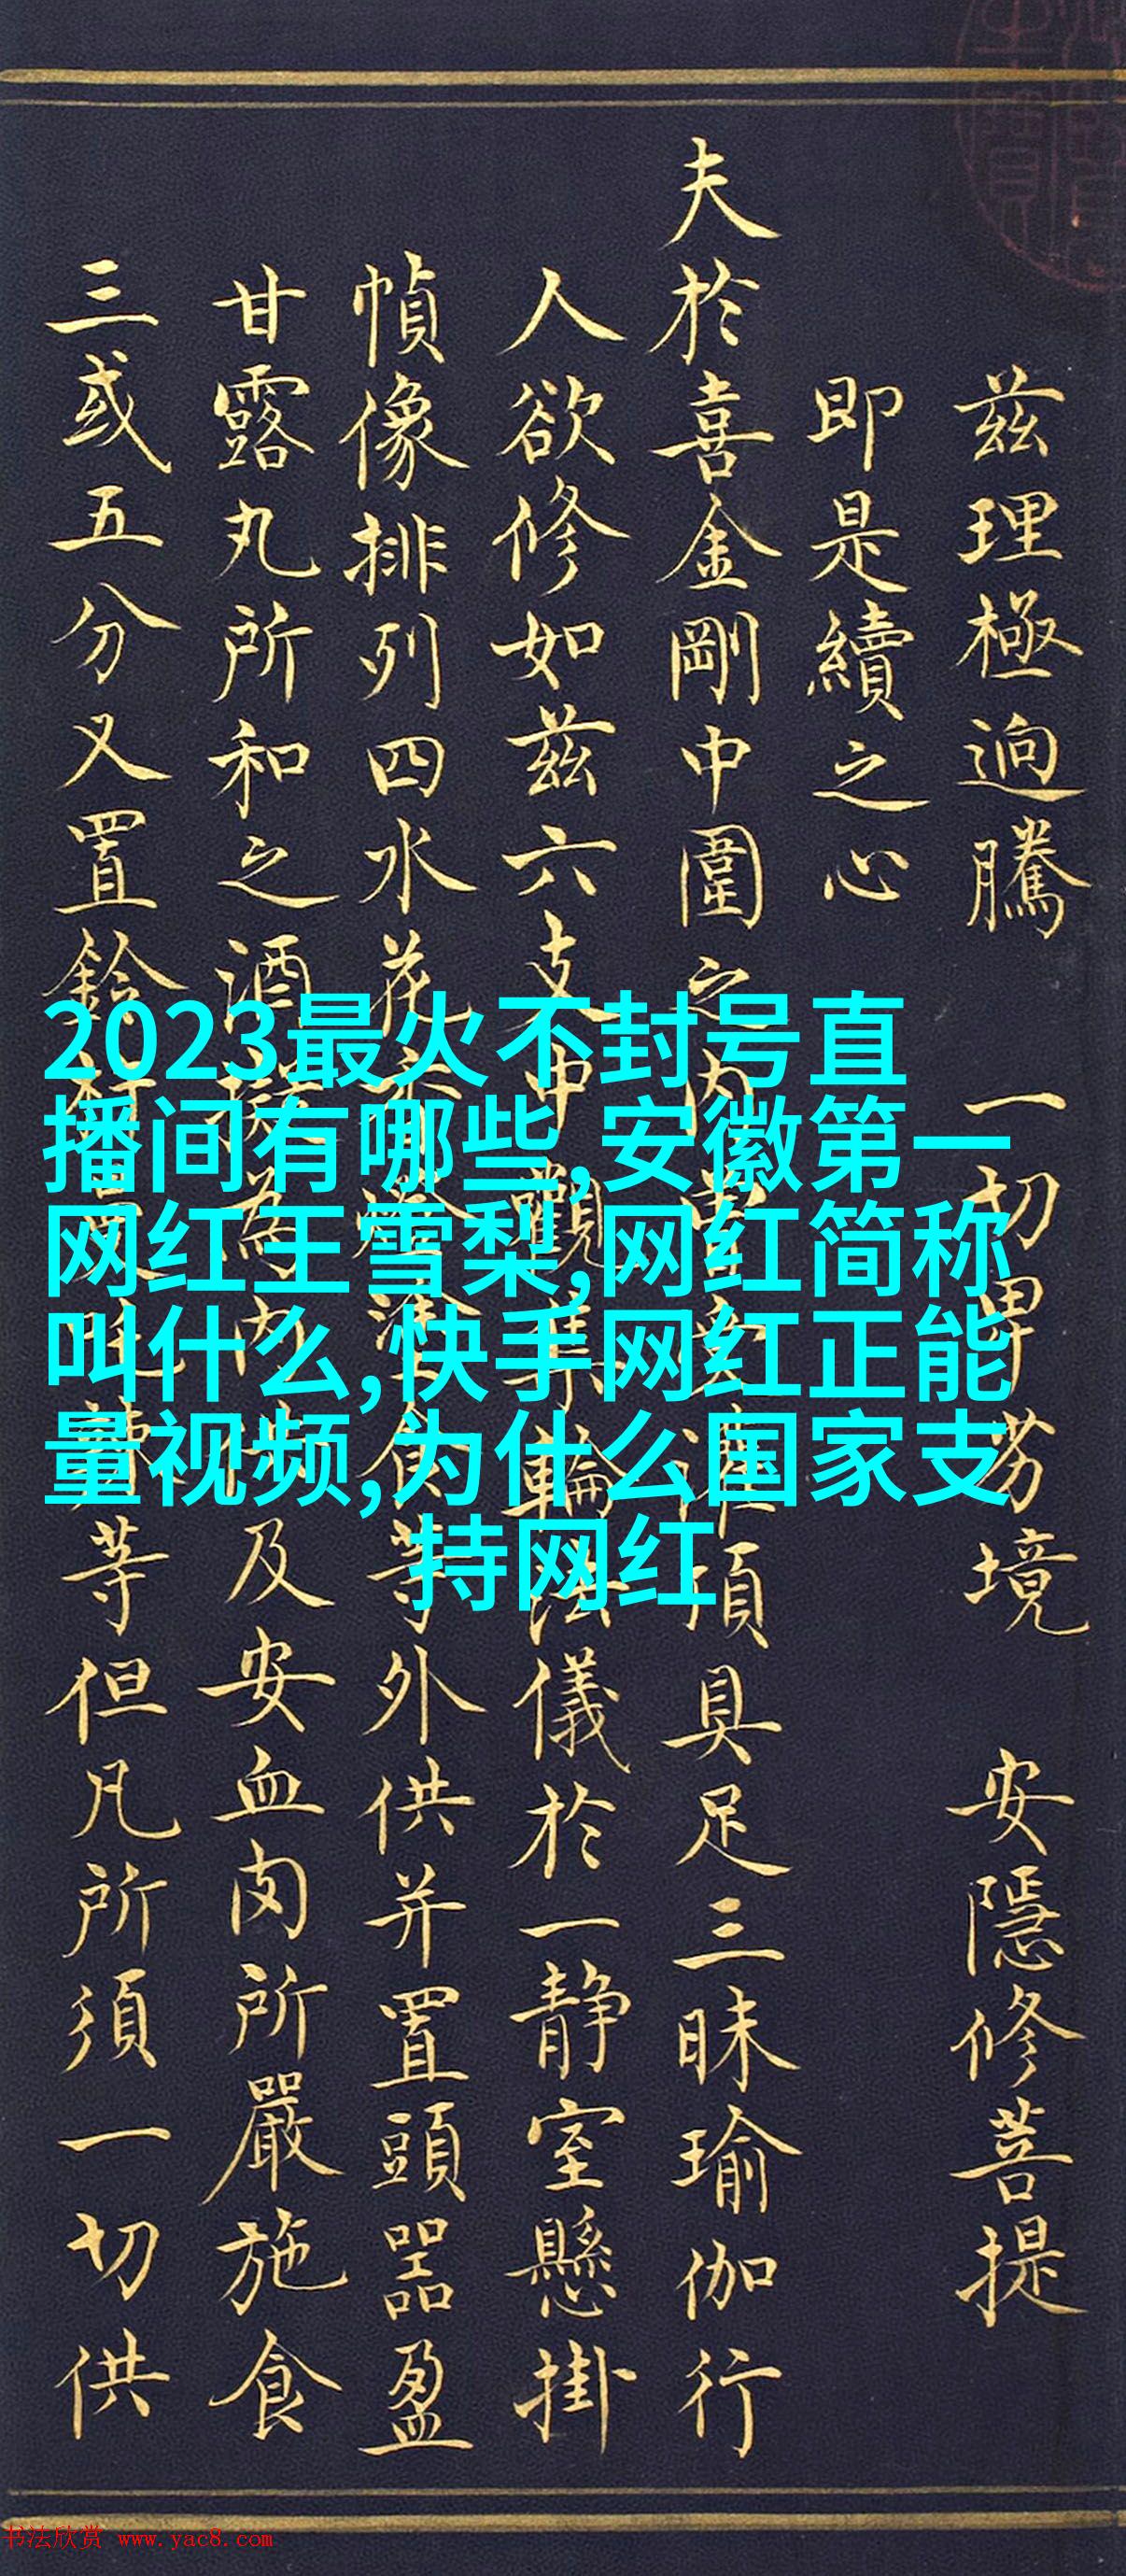 兹理極逈騰 一切卑劣境 安隱修菩提
即是續之心
夫於喜金剛中圍之内灌頂具足三昧瑜伽行
人欲修如兹六支中觀集輪法儀於一静室懸掛
幀像排列四水花塗食等外供并置頭器盈
甘露丸所和之酒為内供及安血肉所嚴施食
三或五分又置鈴等但凡所須一切供
2023最火不封号直
播间有哪些,安徽第一
网红王雪梨,网红简称
叫什么,快手网红正能
量视频,为什么国家支
持网红
书法欣赏 www.yac8.com